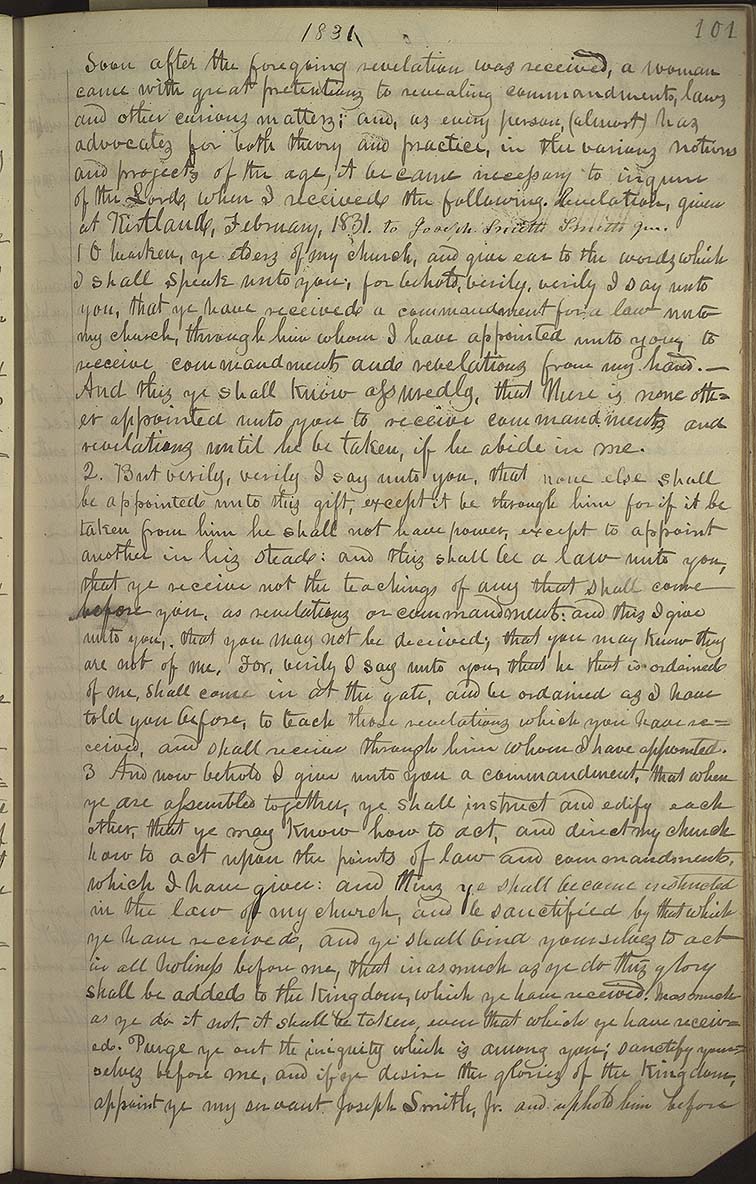 1831
101
Soon after the foregoing revelation was received, a woman
came with great pretentions to revealing commandments, laws
and other curious matters; and, as every person, (almost) has
advocates for both theory and practice, in the various notions
and projects of the age, it became necessary to inquire
of the Lord, when I received the following Revelation, given
at Kirtland, February, 1831. to Joseph Smith Smith jun.
1 O harken, ye elders of my church, and give ear to the words which
I shall speak unto you; for behold, verily, verily I say unto
you, that ye have received a commandment for a law unto
my church, through him whom I have appointed unto you, to
receive commandments and revelations from my hand.—
And this ye shall know assuredly, that there is none oth=
er appointed unto you to receive commandments and
revelations until he be taken, if he abide in me.
2. But verily, verily I say unto you, that none else shall
be appointed unto this gift, except it be through him for if it be
taken from him he shall not have power, except to appoint
another in his stead: and this shall be a law unto you,
that ye receive not the teachings of any that shall come
before you, as revelations or commandments: and this I give
unto you, that you may not be deceived, that you may know they
are not of me. For, verily I say unto you, that he that is ordained
of me, shall come in at the gate, and be ordained as I have
told you before, to teach those revelations which you have re=
ceived, and shall receive through him whom I have appointed.
3 And now behold I give unto you a commandment, that when
ye are assembled together, ye shall instruct and edify each
other, that ye may know how to act, and direct my church
how to act upon the points of law and commandments,
which I have given: and thus ye shall become instructed
in the law of my church, and be sanctified by that which
ye have received, and ye shall bind yourselves to act
in all holiness before me, that inasmuch as ye do this glory
shall be added to the kingdom, which ye have received. Inasmuch
as ye do it not, it shall be taken, even that which ye have receiv=
ed. Purge ye out the iniquity which is among you; sanctify your=
selves before me, and if ye desire the glories of the kingdom,
appoint ye my servant Joseph Smith, Jr. and uphold him before